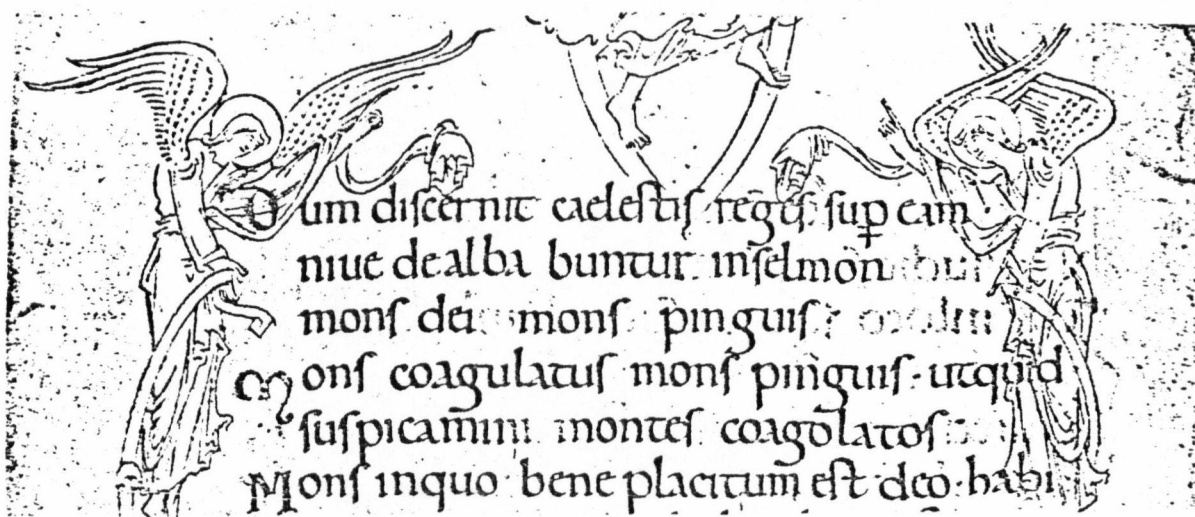 Dum discernit caelestis reges sup eam
niue dealba buntur inselmon
mons dei mons pinguis
Mons coagulatus mons pinguis · utquid
suspicamini montes coagolatos
Mons inquo bene placitum est deo · habi